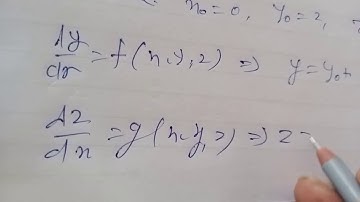 x₀=0, y₀=2,
dy/dx = f(x,y,z) ⇒ y=y₀+
dz/dx = g(x,y,z) ⇒ z=